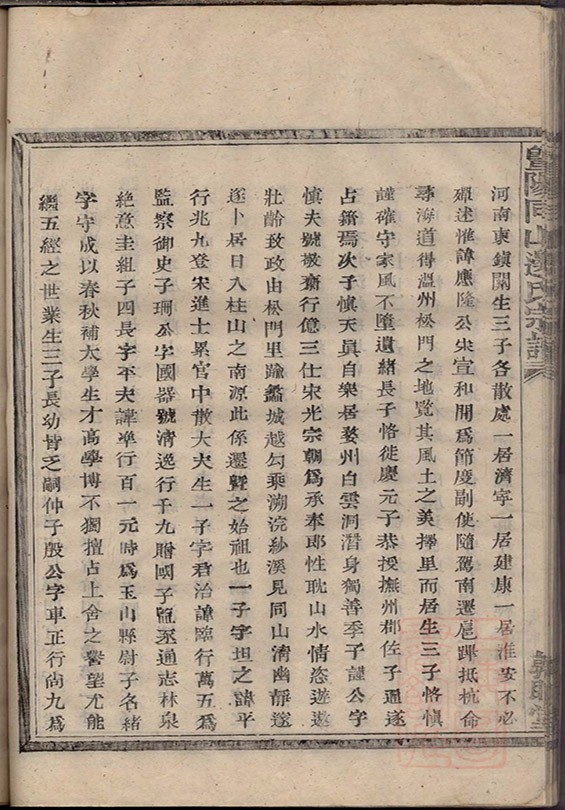 河南東鎮關生三子各散處一居濟寧一居建康一居淮安不必
殫述惟諱應隆公宋宣和間爲節度副使隨駕南遷扈蹕抵杭命
尋海道得溫州松門之地覽其風土之美擇里而居生三子恪慎
謹確守家風不墮遺緒長子恪徙慶元子恭授撫州郡佐子通遂
占籍焉次子慎天眞自樂居婺州白雲洞潛身獨善季子謹公字
慎夫號敬齋行億三仕宋光宗朝爲承奉郎性耽山水情恣遊遨
壯齡致政由松門里踰蠡城越勾乘溯浣紗溪見同山清幽靜邃
遂卜居日入柱山之南源此係遷曁之始祖也一子字坦之諱平
行兆九登宋進士累官中散大夫生一子字君治諱臨行萬五爲
監察御史子珊公字國器號清逸行千九贈國子監丞通志林泉
絕意圭組子四長字平夫諱準行百一元時爲玉山縣尉子名緒
字守成以春秋補太學生才高學博不獨擅占上舍之譽望尤能
繼五經之世業生三子長幼皆乏嗣仲子殷公字車正行尚九爲
曁陽同山邊氏宗譜